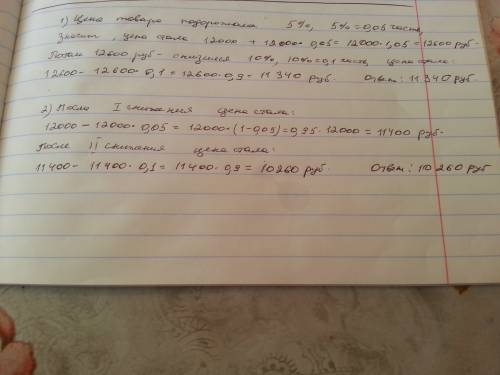 1) Цена товара подорожала 5%, 5% = 0,05 часть,
значит, цена стала 12000 + 12000 · 0,05 = 12000 · 1,05 = 12600 руб.
Потом 12600 руб - снизился 10%, 10% = 0,1 часть, цена стала:
12600 - 12600 · 0,1 = 12600 · 0,9 = 11340 руб. Ответ: 11340 руб.
2) После I снижения цена стала:
12000 - 12000 · 0,05 = 12000 · (1-0,05) = 0,95 · 12000 = 11400 руб.
После II снижения цена стала:
11400 - 11400 · 0,1 = 11400 · 0,9 = 10260 руб. Ответ: 10260 руб